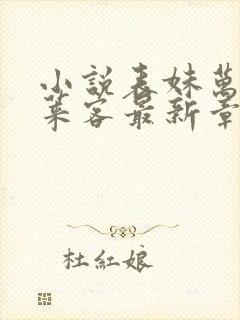 小說表妹萬
菜客最新章
杜紅娘